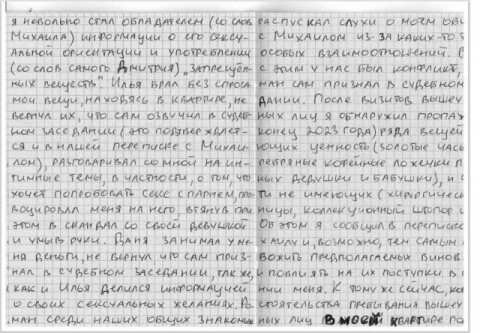 я невольно стал обладателем (со слов
Михаила) информации о его сексу-
альной ориентации и употреблении
(со слов самого Дмитрия) „запрещён-
ных веществ". Илья брал без спроса
мои вещи, находясь в квартире, не
вернул их, что сам озвучил в судеб-
ном заседании (это подтверждает-
ся и в нашей переписке с Михаи-
лом), разговаривал со мной на ин-
тимные темы, в частности, о том, что
хочет попробовать секс с парнем, про-
воцировал меня на него, втянув при
этом в скандал со своей девушкой
и умыв руки. Даня занимал у ме-
ня деньги, не вернул что сам приз-
нал в судебном заседании, так же,
как и Илья делился информацией
о своих сексуальных желаниях. Ро-
ман среди наших общих знакомых
распускал слухи о моём об
с Михаилом из-за каких-то
особых взаимоотношений. С
с этим у нас был конфликт,
ман сам признал в судебном
дании. После визитов вышеу
ных лиц я обнаружил пропаж
конец 2023 года) ряда вещей
ющих ценность (золотые часы
ребряные кофейные ложечки п
ных дедушки и бабушки), и
ти не имеющих (хирургичес
ницы, коллекционный штопор
Об этом я сообщил в переписке
хаилу и, возможно, тем самым
вожить предполагаемых винов
и повлиять на их поступки в
нии меня. К тому же сейчас, ко
стоятельства пребывания вышеу
ных лиц в моей квартире по